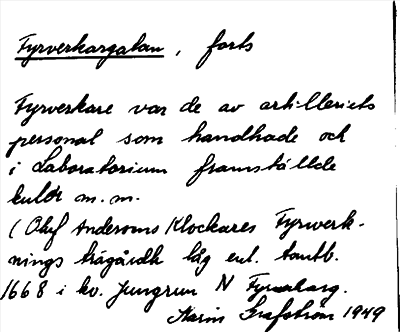 Fyrverkargatan, forts
Fyrverkare var de av artilleriets
personal som handhade och
i Laboratorium framställde
kulor m.m.
(Oluf Andersons Klockares Fyrwerk-
nings trägårdh låg enl. tomtb.
1668 i kv. Jungfrun N Fyrverkarg.
Karin Grafström 1949